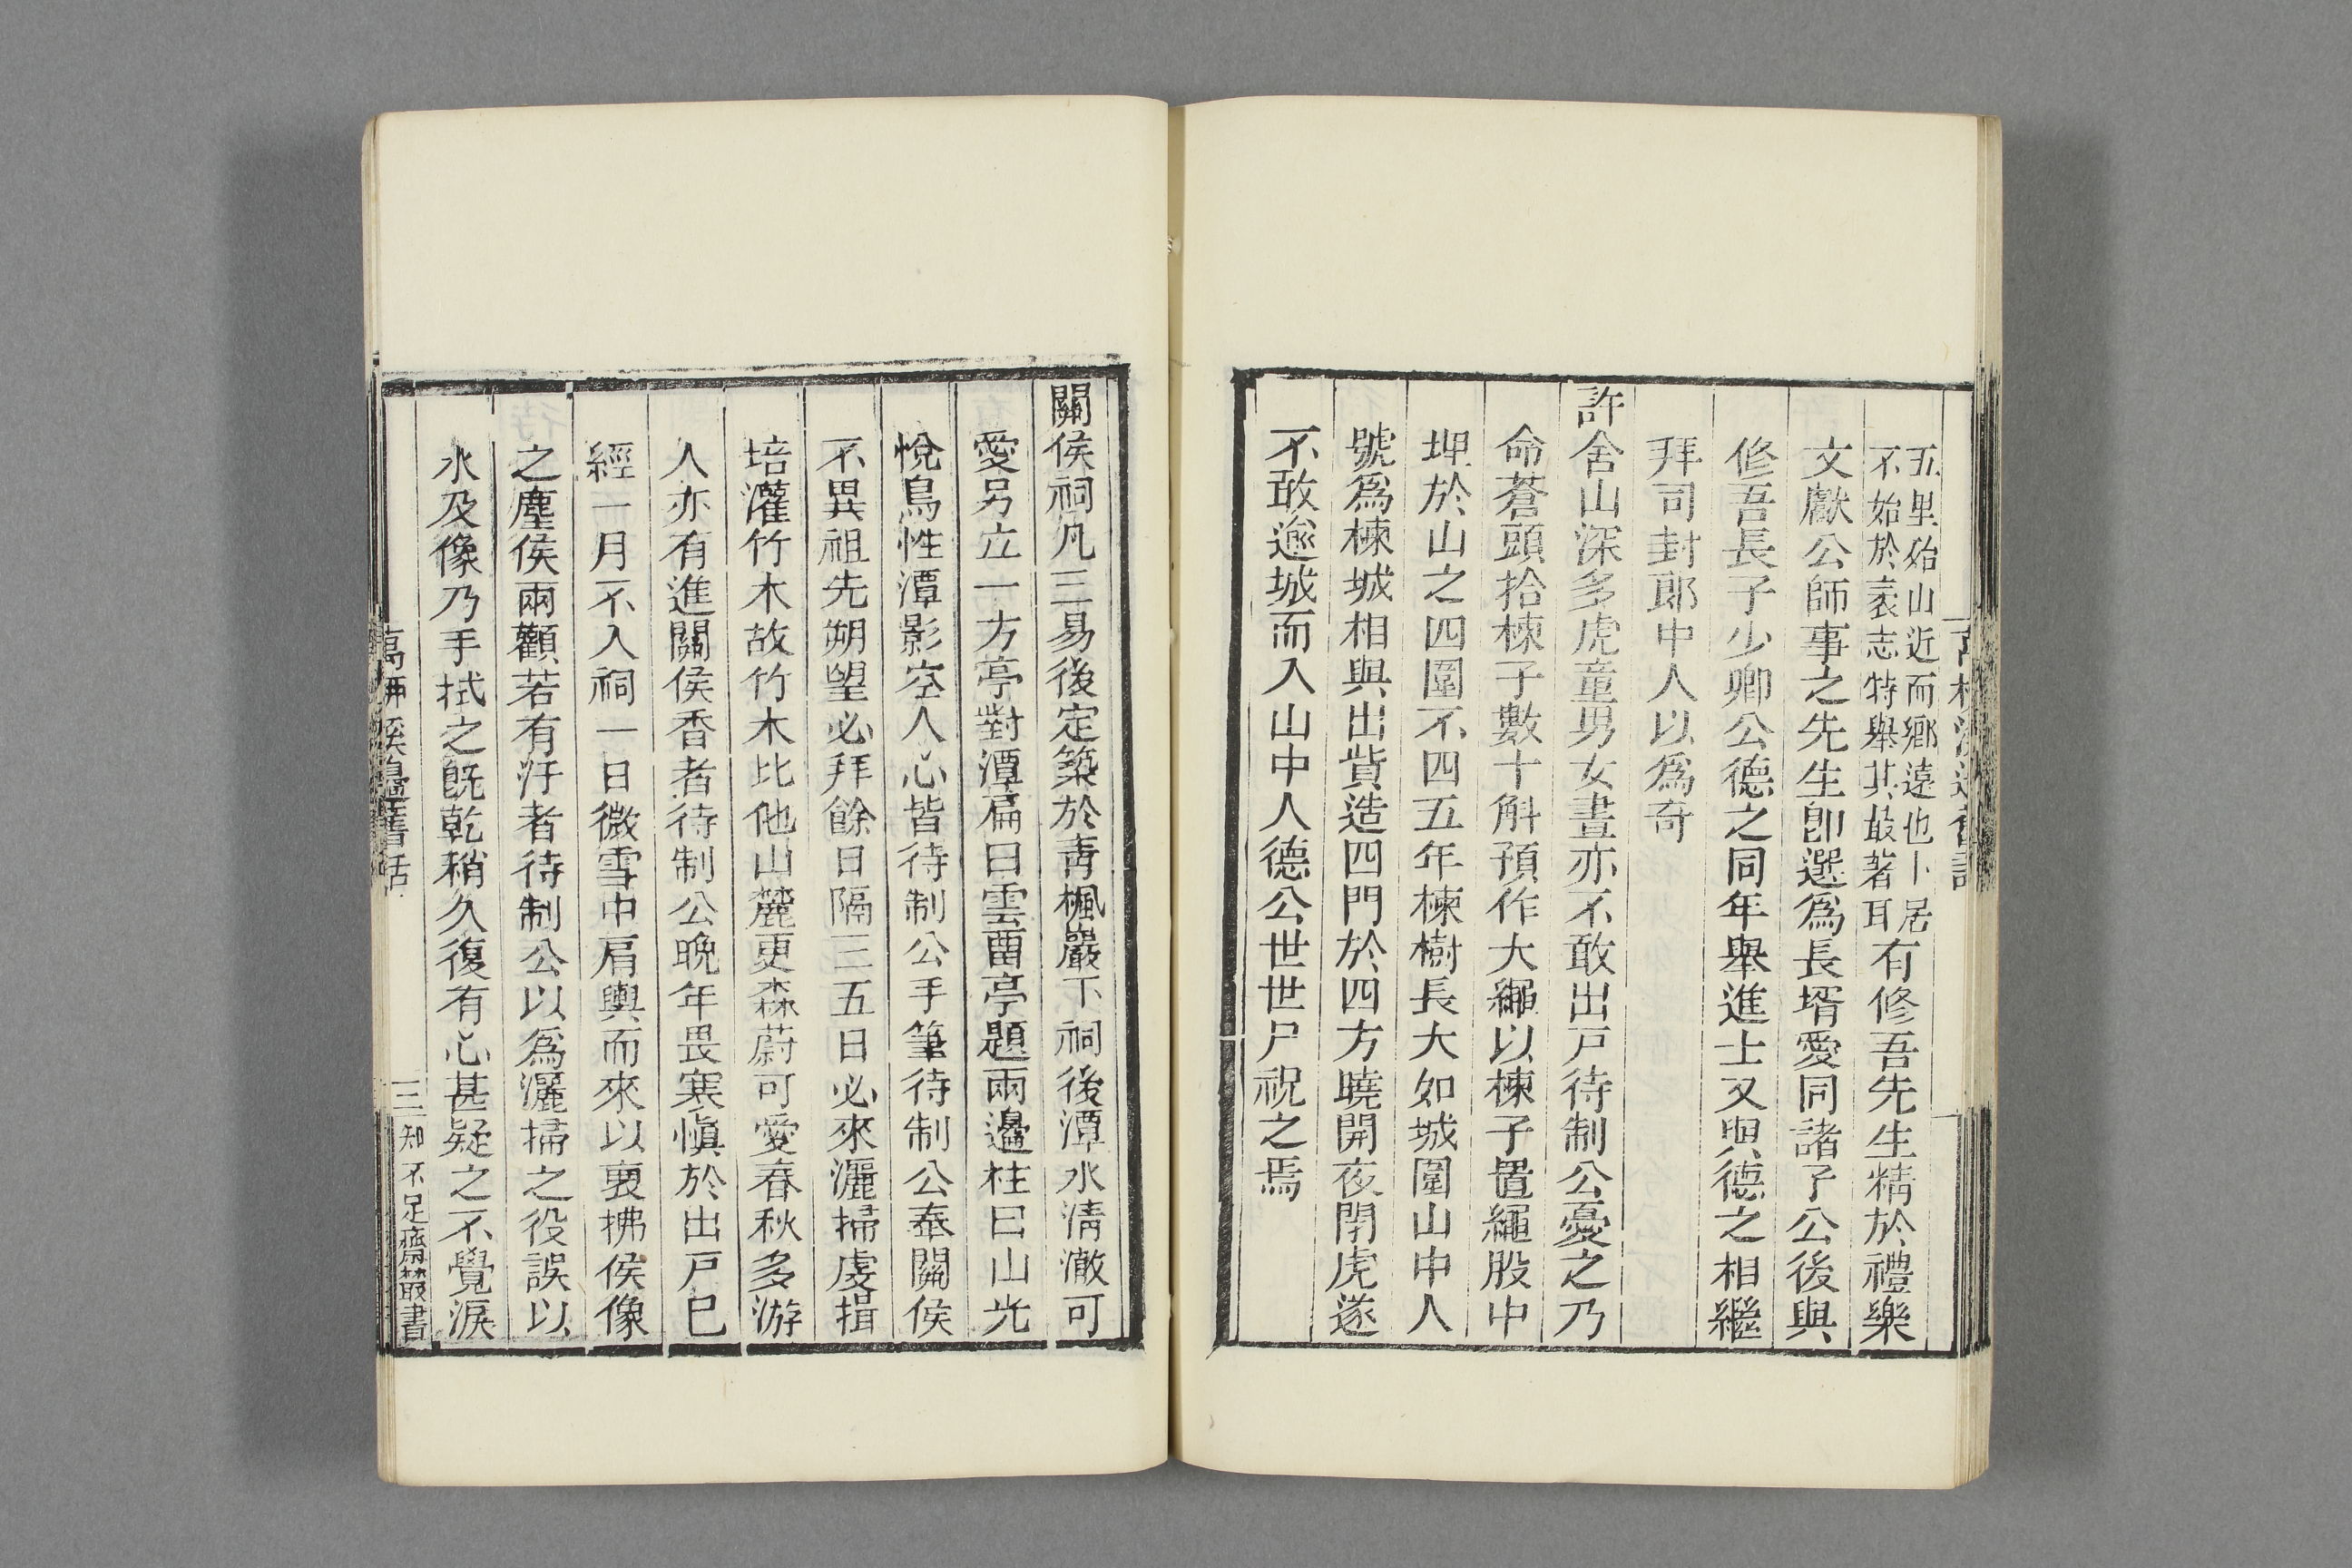 五里殆山近而鄉遠也卜居
不始於袁志特舉其最著耳
有修吾先生精於禮樂
文獻公師事之先生卽選爲長壻愛同諸子公後與
修吾長子少卿公德之同年舉進士又與德之相繼
拜司封郎中人以爲奇
許舍山深多虎童男女晝亦不敢出戸待制公憂之乃
命蒼頭拾楝子數十斛預作大繩以楝子置繩股中
埋於山之四圍不四五年楝樹長大如城圍山中人
號爲楝城相與出貲造四門於四方曉開夜閉虎遂
不敢逾城而入山中人德公世世尸祝之焉
關侯祠凡三易後定築於靑楓巖下祠後潭水淸澈可
愛另立一方亭對潭扁曰雲畱亭題兩邊柱曰山光
悅鳥性潭影空人心皆待制公手筆待制公奉關侯
不異祖先朔望必拜餘日隔三五日必來灑掃虔揖
培灌竹木故竹木比他山麓更森蔚可愛春秋多游
人亦有進關侯香者待制公晩年畏寒愼於出戸已
經一月不入祠一日微雪中肩輿而來以裏拂侯像
之塵侯兩顴若有汙者待制公以爲灑掃之役誤以
水及像乃手拭之旣乾稍久復有心甚疑之不覺淚
萬柳溪邊舊話
三
知不足齋叢書